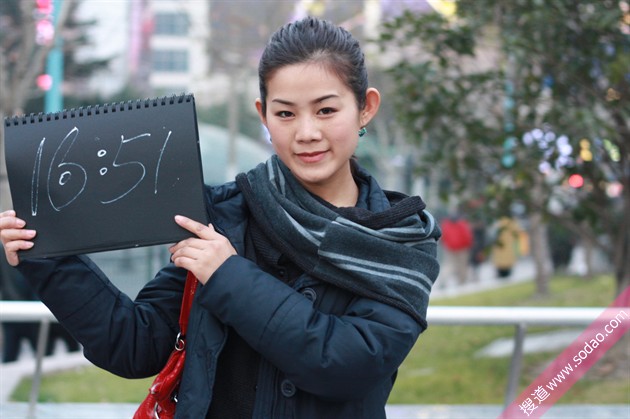 16:51
搜道 www.sodao.com